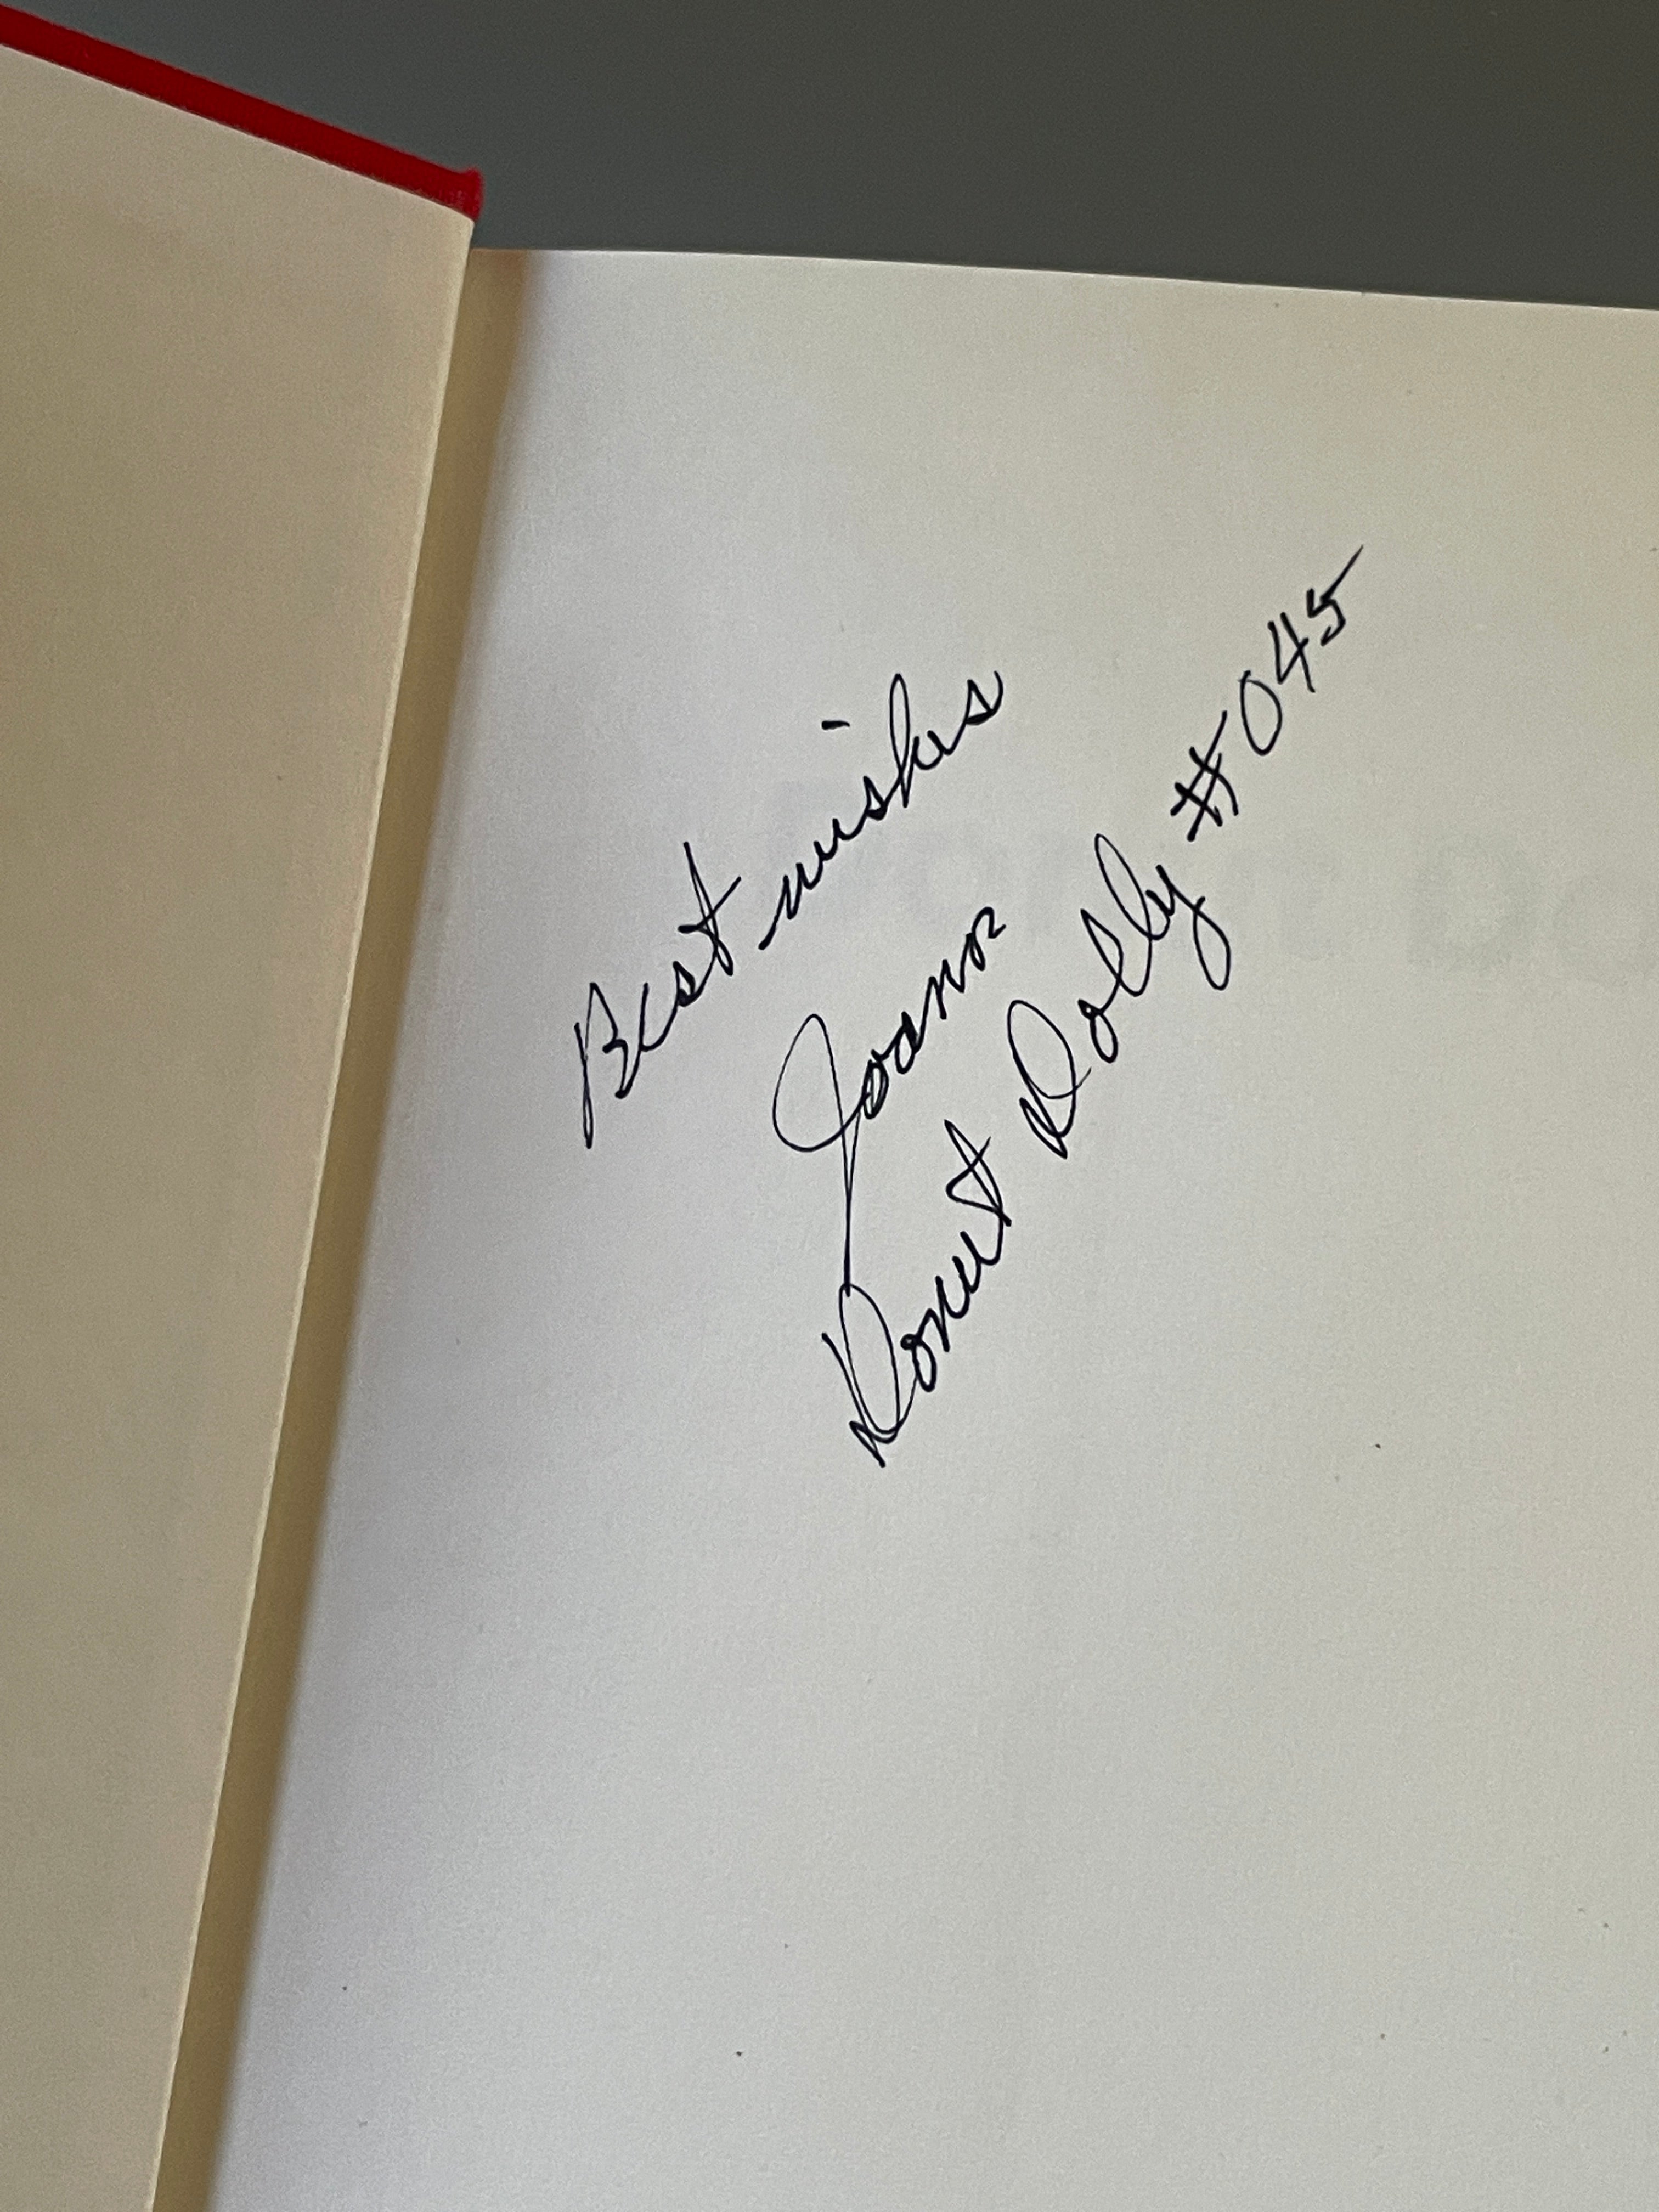 Best wishes
Joann
Donut Dolly #045